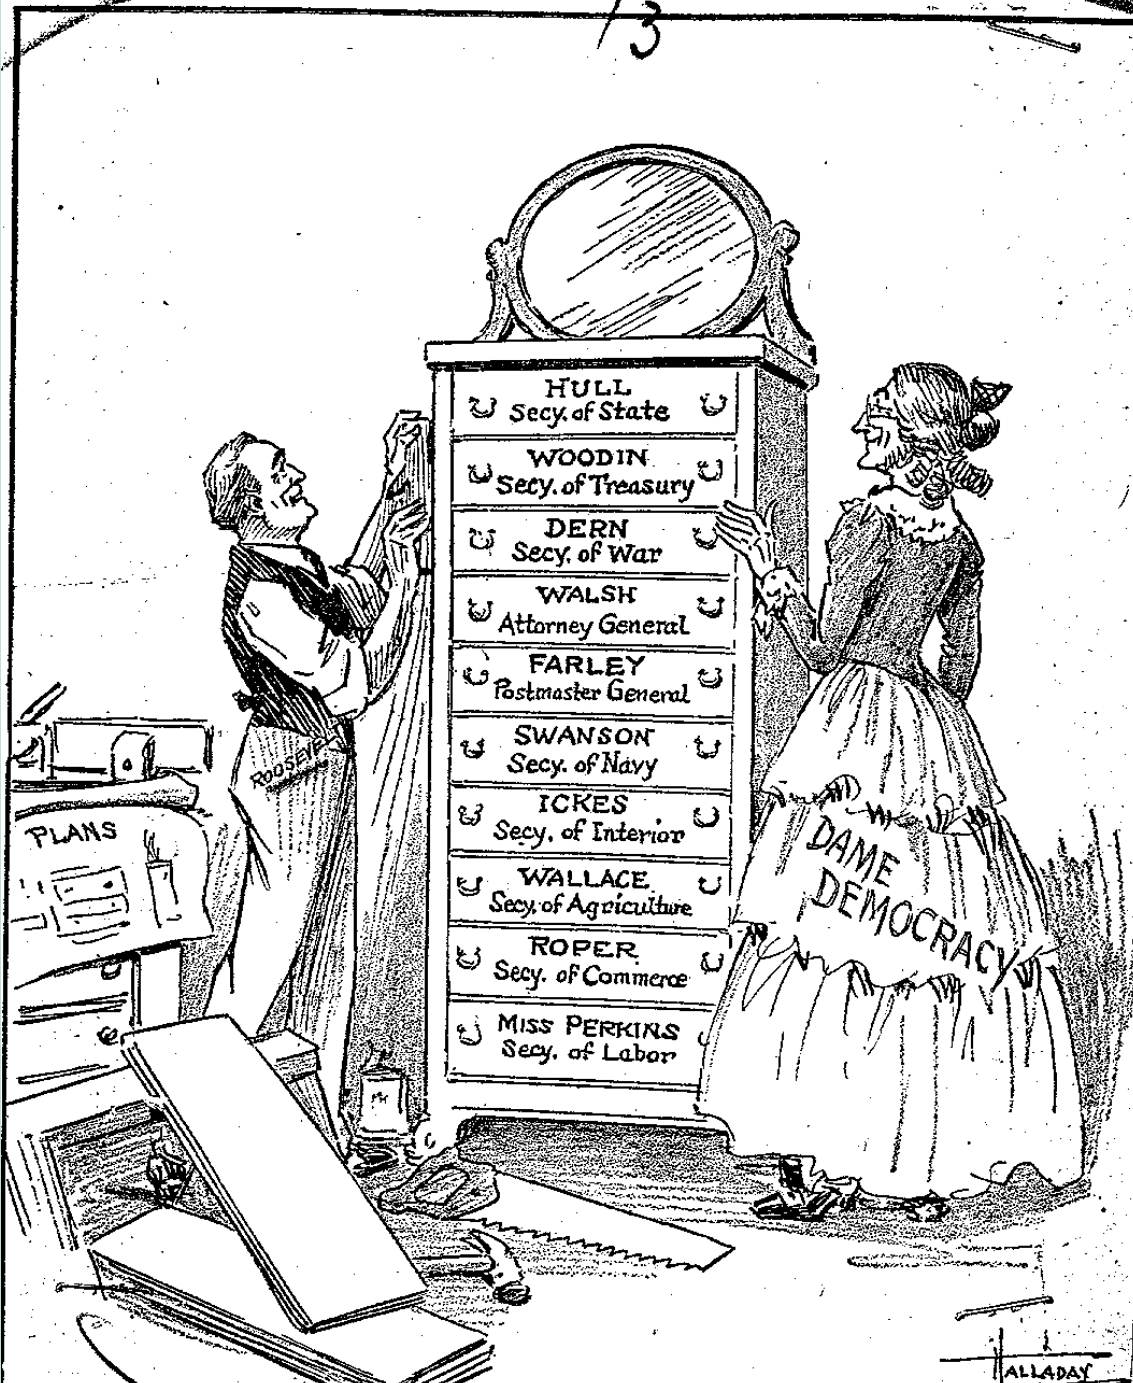 13
HULL
Secy. of State
WOODIN
Secy. of Treasury
DERN
Secy. of War
WALSH
Attorney General
FARLEY
Postmaster General
SWANSON
Secy. of Navy
ICKES
Secy. of Interior
WALLACE
Secy. of Agriculture
ROPER
Secy. of Commerce
MISS PERKINS
Secy. of Labor
ROOSEVELT
PLANS
DAME
DEMOCRACY
HALLADAY